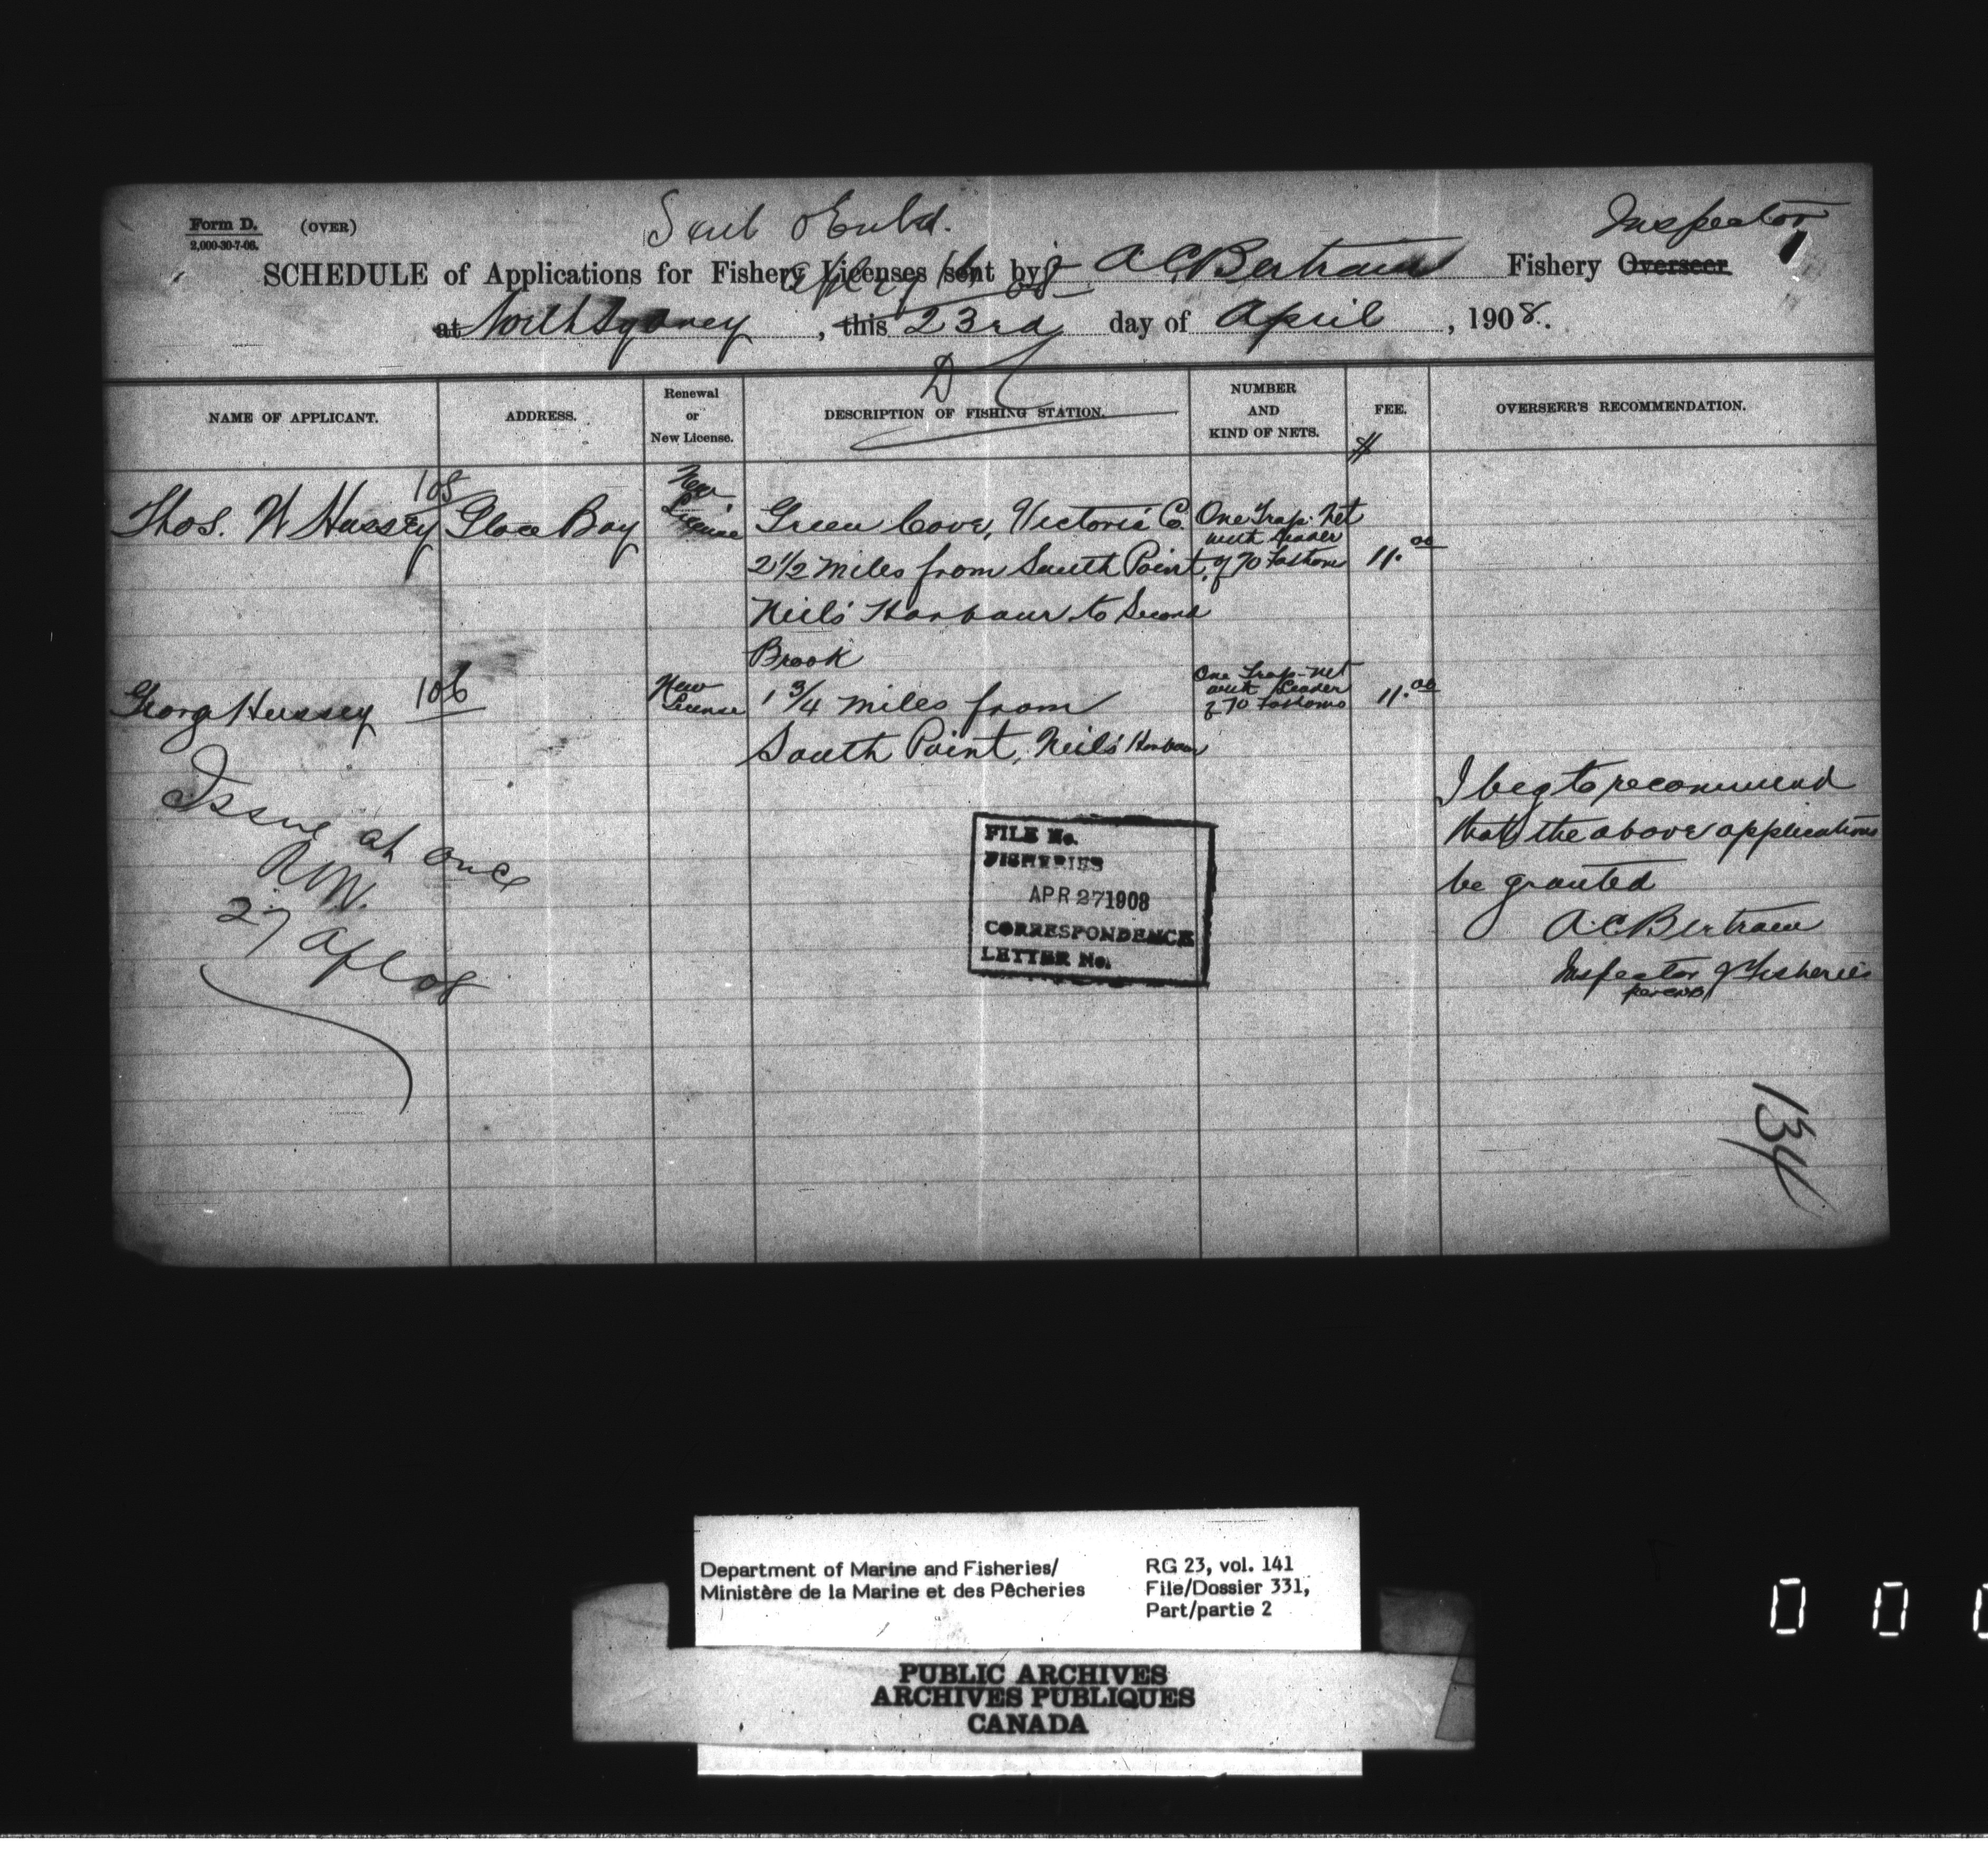 Form D. (OVER)
2,000-30-7-06.
Inspector
SCHEDULE of Applications for Fishery Licenses sent by A C Bertram Fishery Overseer
at North Sydney, this 23rd day of April, 1908.
NAME OF APPLICANT. ADDRESS. Renewal or New License. DESCRIPTION OF FISHING STATION. NUMBER AND KIND OF NETS. FEE. OVERSEER'S RECOMMENDATION.
$
Thos. W Hussey Glace Bay New License Green Cove, Victoria Co. One Trap-Net
with leader
2½ miles from South Point, of 70 Fathoms 11.00
Neil's Harbour to Second
Brook
George Hussey 106 New License 1¾ miles from One Trap-net
with Leader
of 70 Fathoms 11.00
South Point, Neil's Harbour
Issue at once
27 Apl 08
I beg to recommend
that the above applications
be granted
A. C. Bertram
Inspector of Fisheries
FILE No.
FISHERIES
APR 27 1908
CORRESPONDENCE
LETTER No.
Department of Marine and Fisheries/
Ministère de la Marine et des Pêcheries
RG 23, vol. 141
File/Dossier 331,
Part/partie 2
PUBLIC ARCHIVES
ARCHIVES PUBLIQUES
CANADA
0 0